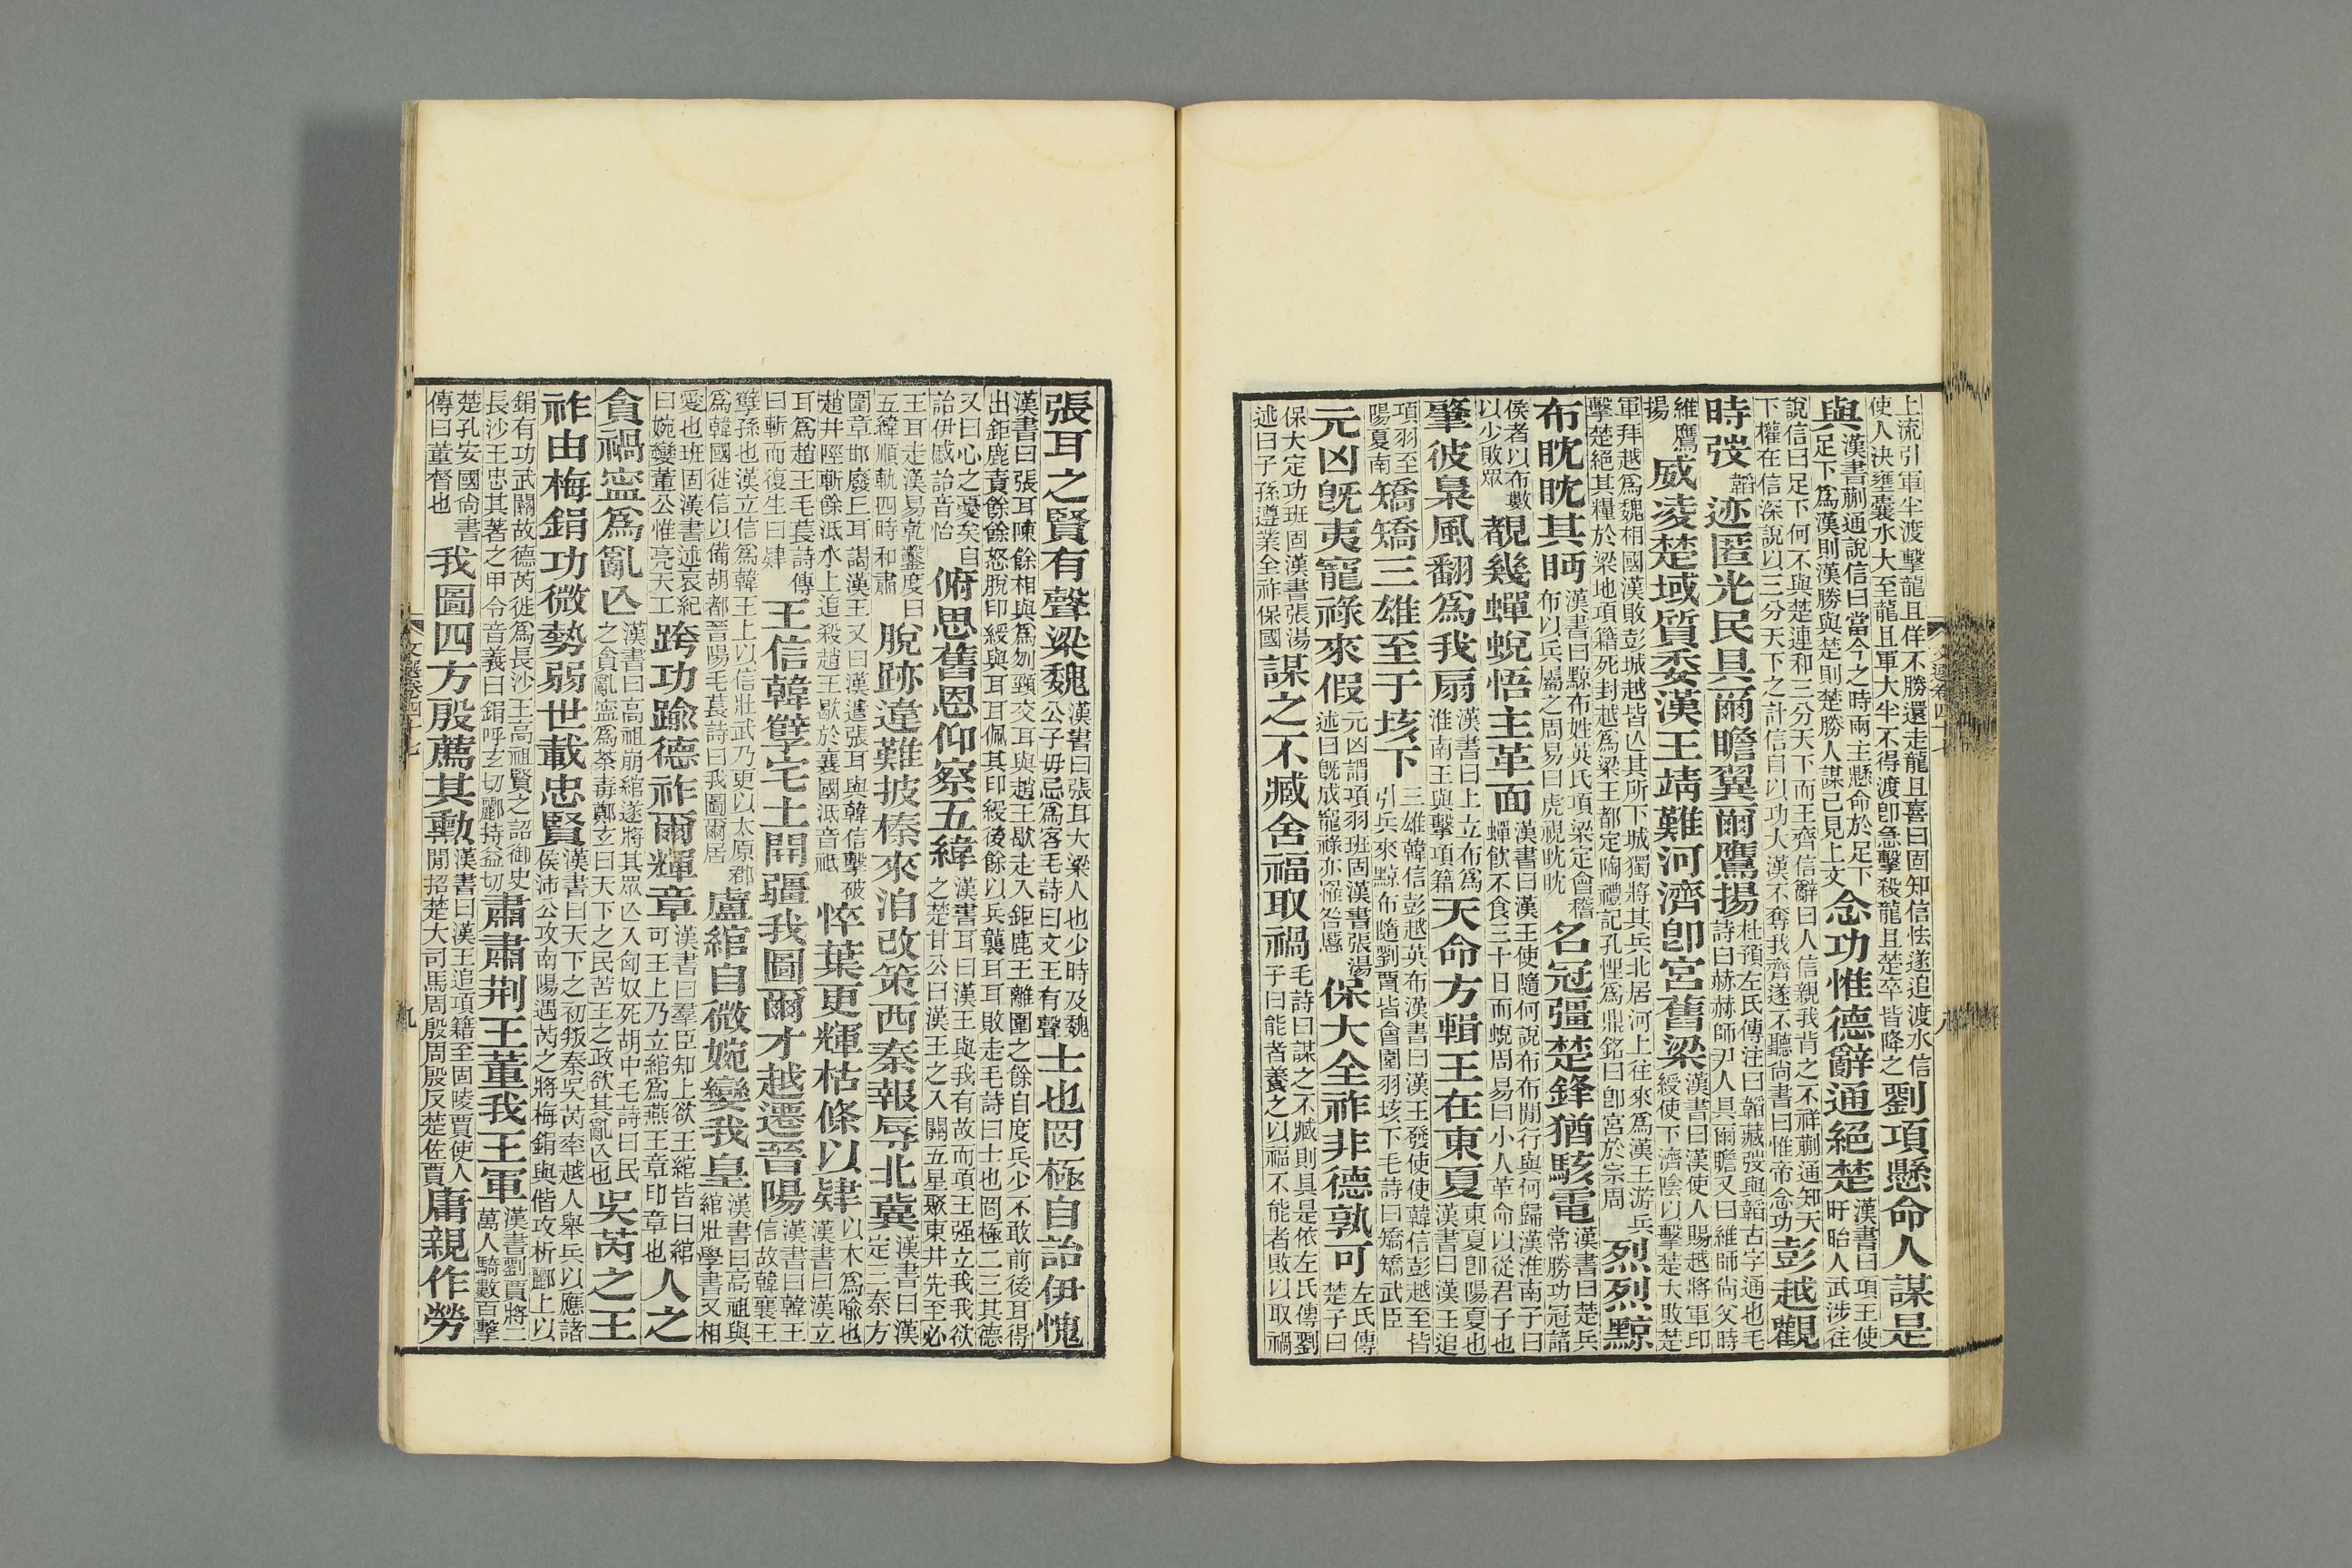 上流引軍半渡擊龍且佯不勝還走龍且喜曰固知信怯遂追渡水信使人決壅囊水大至龍且軍大半不得渡卽急擊殺龍且楚卒皆降之劉項懸命人謀是
與漢書蒯通說信曰當今之時兩主懸命於足下足下爲漢則漢勝與楚則楚勝人謀已見上文念功惟德辭通絕楚漢書曰項王使盱眙人武涉往
說信曰足下何不與楚連和三分天下而王齊信辭曰人信親我背之不祥蒯通知天下權在信深說以三分天下之計信自以功大漢不奪我齊遂不聽尚書曰惟帝念功彭越觀
時弢韜迹匿光民具爾瞻翼爾鷹揚杜預左氏傳注曰韜藏弢與韜古字通也毛詩曰赫赫師尹人具爾瞻又曰維師尚父時
維鷹揚威凌楚域質委漢王靖難河濟卽宮舊梁漢書曰漢使人賜越將軍印綬使下濟陰以擊楚大敗楚
軍拜越爲魏相國漢敗彭城越皆亾其所下城獨將其兵北居河上往來爲漢王游兵擊楚絕其糧於梁地項籍死封越爲梁王都定陶禮記孔悝爲鼎銘曰卽宮於宗周烈烈黥
布眈眈其眄漢書曰黥布姓英氏項梁定會稽布以兵屬之周易曰虎視眈眈名冠彊楚鋒猶駭電漢書曰楚兵常勝功冠諸
侯者以布數以少敗眾覩幾蟬蛻悟主革面漢書曰漢王使隨何說布布閒行與何歸漢淮南子曰蟬飲不食三十日而蛻周易曰小人革命以從君子也
肇彼梟風翻爲我扇漢書曰上立布爲淮南王與擊項籍天命方輯王在東夏東夏卽陽夏也漢書曰漢王追
項羽至陽夏南矯矯三雄至于垓下三雄韓信彭越英布漢書曰漢王發使使韓信彭越至皆引兵來黥布隨劉賈皆會圍羽垓下毛詩曰矯矯武臣
元凶旣夷寵祿來假元凶謂項羽班固漢書張湯述曰旣成寵祿亦罹咎慝保大全祚非德孰可左氏傳楚子曰
保大定功班固漢書張湯述曰子孫遵業全祚保國謀之不臧舍福取禍毛詩曰謀之不臧則具是依左氏傳劉子曰能者養之以福不能者敗以取禍
張耳之賢有聲梁魏漢書曰張耳大梁人也少時及魏公子毋忌爲客毛詩曰文王有聲士也罔極自詒伊愧
漢書曰張耳陳餘相與爲刎頸交耳與趙王歇走入鉅鹿王離圍之餘自度兵少不敢前後耳得出鉅鹿責餘餘怒脫印綬與耳耳佩其印綬後餘以兵襲耳耳敗走毛詩曰士也罔極二三其德
又曰心之憂矣自詒伊慼詒音怡俯思舊恩仰察五緯漢書耳曰漢王與我有故而項王强立我我欲之楚甘公曰漢王之入關五星聚東井先至必
王耳走漢易乾鑿度曰五緯順軌四時和肅脫跡違難披榛來洎改策西秦報辱北冀漢書曰漢定三秦方
圍章邯廢丘耳謁漢王又曰漢遣張耳與韓信擊破趙井陘斬餘泜水上追殺趙王歇於襄國泜音祇悴葉更輝枯條以肄以木爲喻也漢書曰漢立
耳爲趙王毛萇詩傳曰斬而復生曰肄王信韓孽宅土開疆我圖爾才越遷晉陽漢書曰韓王信故韓襄王
孽孫也漢立信爲韓王上以信壯武乃更以太原郡爲韓國徙信以備胡都晉陽毛萇詩曰我圖爾居盧綰自微婉孌我皇漢書曰高祖與綰壯學書又相
愛也班固漢書述哀紀曰婉孌董公惟亮天工跨功踰德祚爾輝章漢書曰羣臣知上欲王綰皆曰綰可王上乃立綰爲燕王章印章也人之
貪禍寍爲亂亾漢書曰高祖崩綰遂將其眾亾入匈奴死胡中毛詩曰民之貪亂寍爲荼毒鄭玄曰天下之民苦王之政欲其亂亾也吳芮之王
祚由梅鋗功微勢弱世載忠賢漢書曰天下之初叛秦吳芮率越人舉兵以應諸侯沛公攻南陽遇芮之將梅鋗與偕攻析酈上以
鋗有功武關故德芮徙爲長沙王高祖賢之詔御史長沙王忠其著之甲令音義曰鋗呼玄切酈持益切肅肅荆王董我王軍漢書劉賈將二萬人騎數百擊
楚孔安國尚書傳曰董督也我圖四方殷薦其勳漢書曰漢王追項籍至固陵賈使人閒招楚大司馬周殷周殷反楚佐賈庸親作勞
文選卷四十七
九